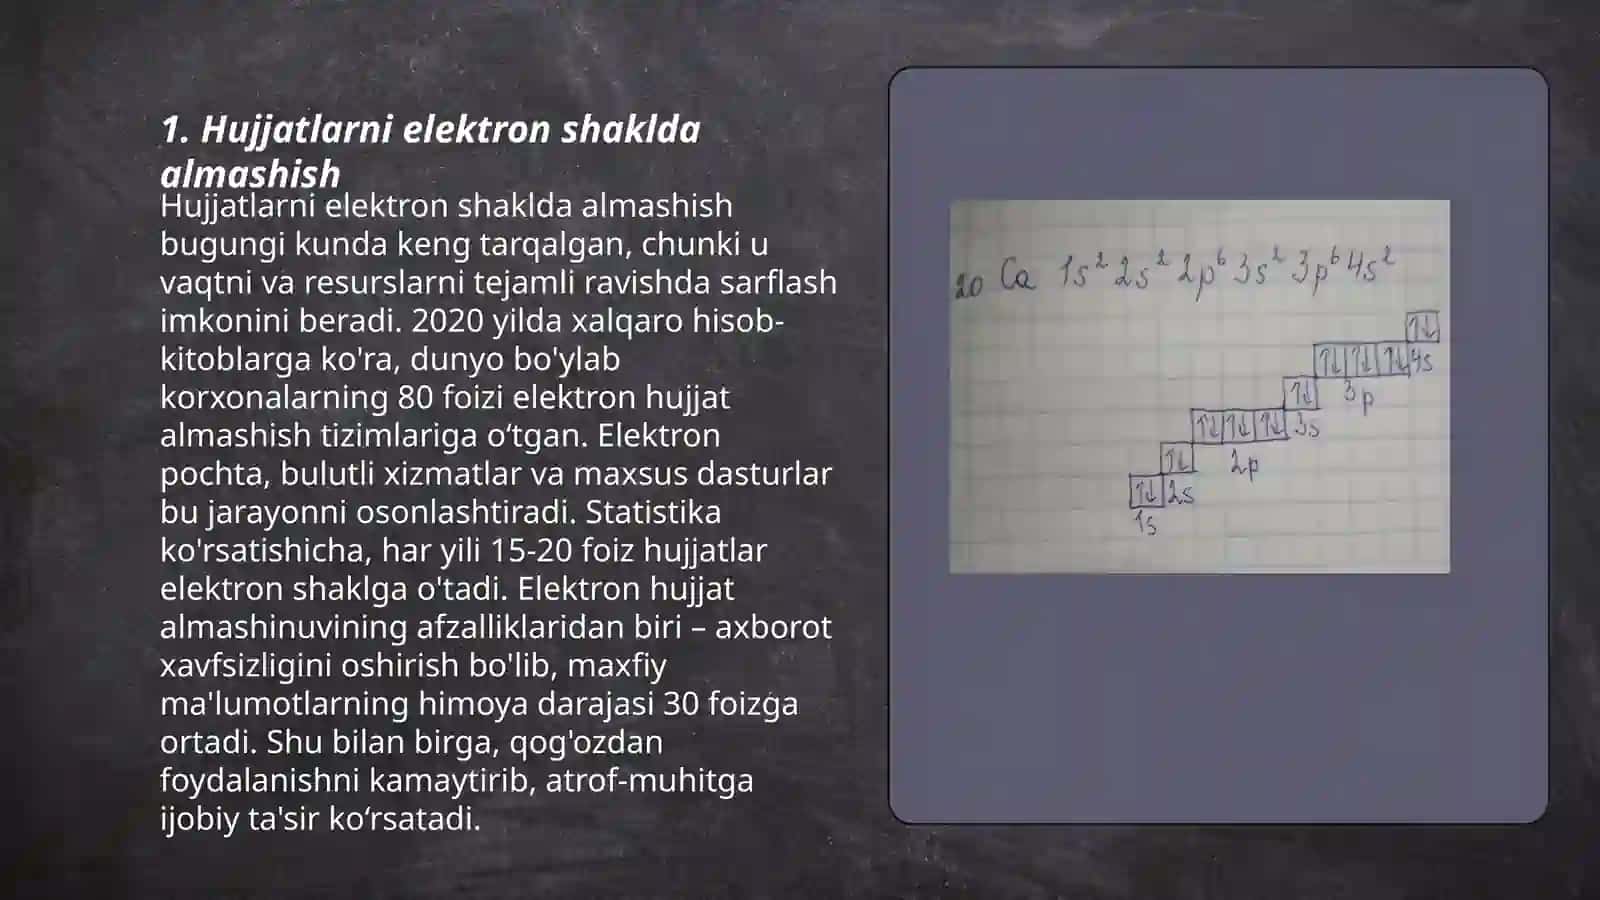 1. Hujjatlarni elektron shaklda
almashish
Hujjatlarni elektron shaklda almashish
bugungi kunda keng tarqalgan, chunki u
vaqtni va resurslarni tejamli ravishda sarflash
imkonini beradi. 2020 yilda xalqaro hisob-
kitoblarga ko'ra, dunyo bo'ylab
korxonalarning 80 foizi elektron hujjat
almashish tizimlariga o‘tgan. Elektron
pochta, bulutli xizmatlar va maxsus dasturlar
bu jarayonni osonlashtiradi. Statistika
ko'rsatishicha, har yili 15-20 foiz hujjatlar
elektron shaklga o'tadi. Elektron hujjat
almashinuvining afzalliklaridan biri – axborot
xavfsizligini oshirish bo'lib, maxfiy
ma'lumotlarning himoya darajasi 30 foizga
ortadi. Shu bilan birga, qog'ozdan
foydalanishni kamaytirib, atrof-muhitga
ijobiy ta'sir ko‘rsatadi.
20 Ca 1s² 2s² 2p⁶ 3s² 3p⁶ 4s²
↑↓
↑↓ ↑↓ ↑↓ 4s
↑↓ 3p
↑↓ ↑↓ ↑↓ 3s
↑↓ 2p
↑↓ 2s
1s